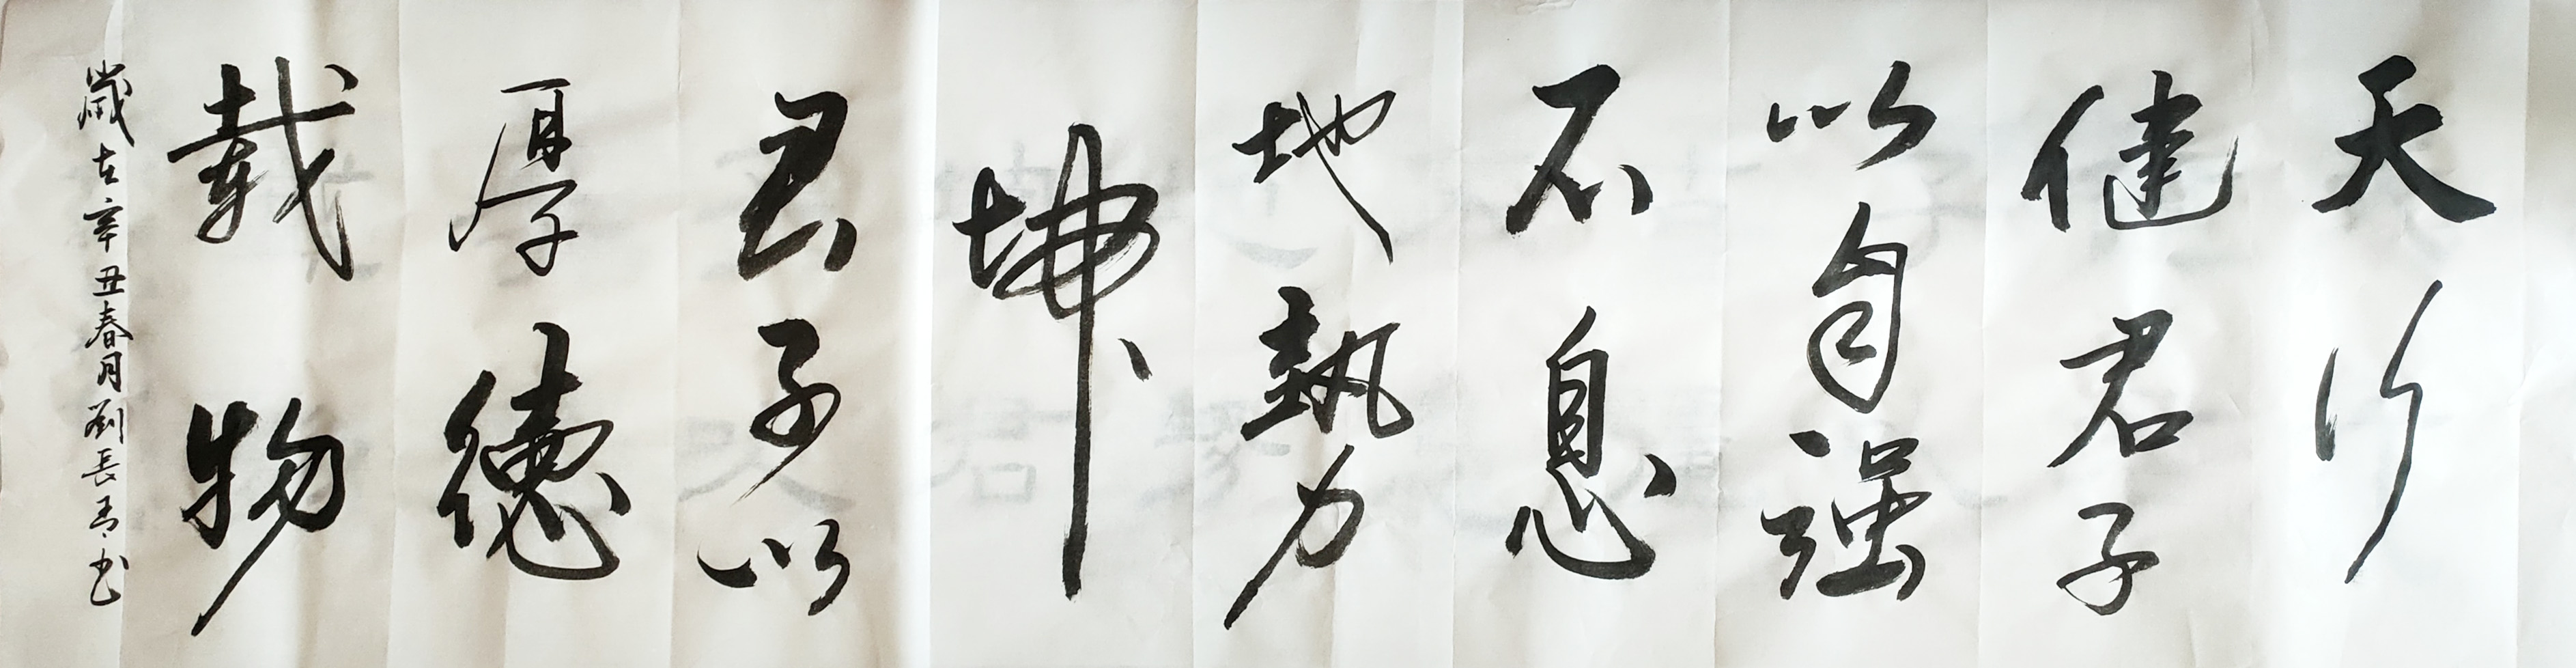 天行
健君子
以自强
不息
地勢
坤
君子以
厚德
载物
歲在辛丑春月劉長青书